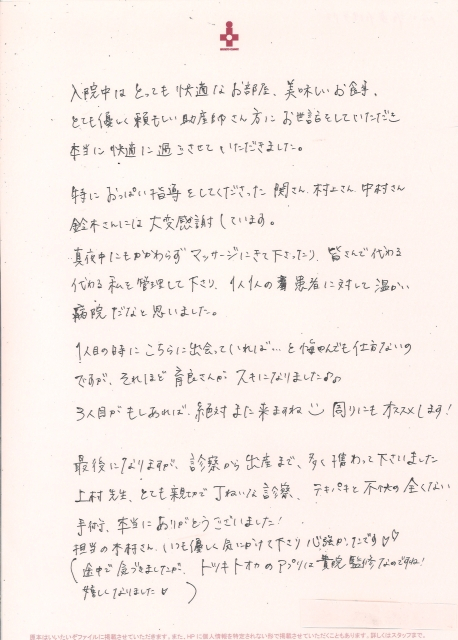 入院中はとっても快適なお部屋、美味しいお食事、
とても優しく頼もしい助産師さん方にお世話をしていただき
本当に快適に過ごさせていただきました。
特におっぱい指導をしてくださった関さん、村上さん、中村さん
鈴木さんには大変感謝しています。
真夜中にもかかわらずマッサージにきて下さったり、皆さんで代わる
代わる私を管理して下さり、1人1人の患者に対して温かい
病院だなと思いました。
1人目の時にこちらに出会っていれば…と悔やんでも仕方ないの
ですが、それほど育良さんがスキになりました♪♪
3人目がもしあれば、絶対また来ますね 周りにもオススメします!
最後になりますが、診察から出産まで、多く携わって下さいました
上村先生、とても親切で丁ねいな診察、テキパキと不快の全くない
手術、本当にありがとうございました!
担当の木村さん、いつも優しく気にかけて下さり心強かったです♡♡
(途中で気づきましたが、トツキトオカのアプリは貴院監修なのですね!
嬉しくなりました♡)
原本はいいたいぞファイルに掲載させていただきます。また、HPに個人情報を特定されない形で掲載させていただくこともあります。詳しくはスタッフまで。